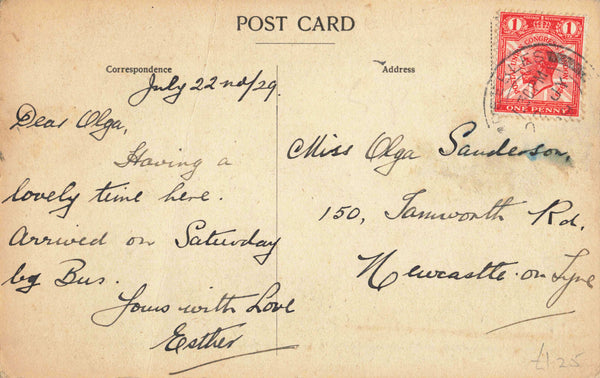 POST CARD
Correspondence
Address
July 22nd/29.
Dear Olga,
Having a
lovely time here.
Arrived on Saturday
by Bus.
Yours with Love
Esther
Miss Olga Sanderson,
150, Tamworth Rd,
Newcastle-on-Tyne
1 1
POSTAL UNION CONGRESS
ONE PENNY
£1.25